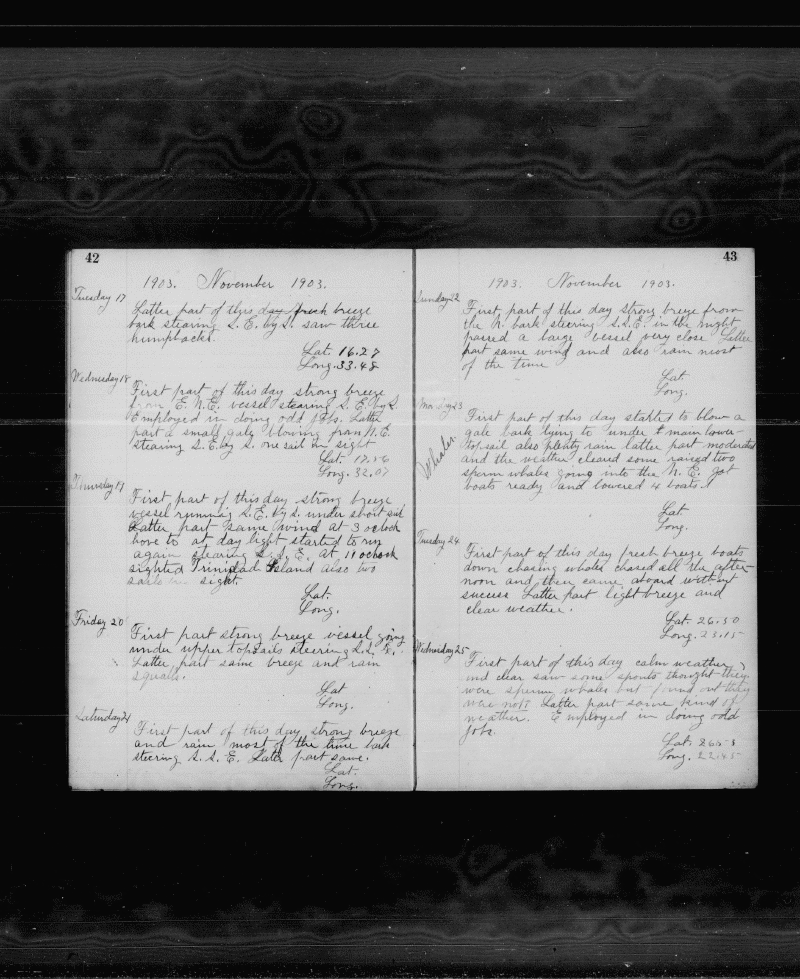 42
1903. November 1903.
Tuesday 17
Latter part of this day fresh breeze
bark stearing S.E. by S. saw three
humpbacks.
Lat. 16.27
Long. 33.48
Wednesday 18
First part of this day strong breeze
from E.N.E. vessel stearing S.E. by S.
Employed in doing odd jobs. Latter
part a small gale blowing from N.E.
stearing S.E. by S. one sail in sight
Lat. 17.56
Long. 32.07
Thursday 19
First part of this day strong breeze
vessel running S.E. by S. under short sail
Latter part same wind at 3 oclock
hove to at day light started to run
again stearing S.S.E. at 11 oclock
sighted Trinidad Island also two
sails in sight
Lat.
Long.
Friday 20
First part strong breeze vessel going
under upper topsails steering S.S.E.
Latter part same breeze and rain
squalls.
Lat
Long.
Saturday 21
First part of this day strong breeze
and rain most of the time bark
steering S.S.E. Later part same.
Lat.
Long.
43
1903. November 1903.
Sunday 22
First part of this day strong breeze from
the N. bark steering S.S.E. in the night
passed a large vessel very close Latter
part same wind and also rain most
of the time
Lat
Long.
Monday 23
First part of this day started to blow a
gale bark lying to under main lower-
topsail also plenty rain latter part moderated
and the weather cleared some raised two
sperm whales going into the N.E. got
boats ready and lowered 4 boats.
Whales
Lat
Long.
Tuesday 24
First part of this day fresh breeze boats
down chasing whales chased all the after-
noon and then came aboard without
success Latter part light breeze and
clear weather.
Lat. 26.50
Long. 23.15
Wednesday 25
First part of this day calm weather
and clear saw some spouts thought they
were sperm whales but found out they
were not Latter part same kind of
weather. Employed in doing odd
jobs.
Lat.
Long. 22.45